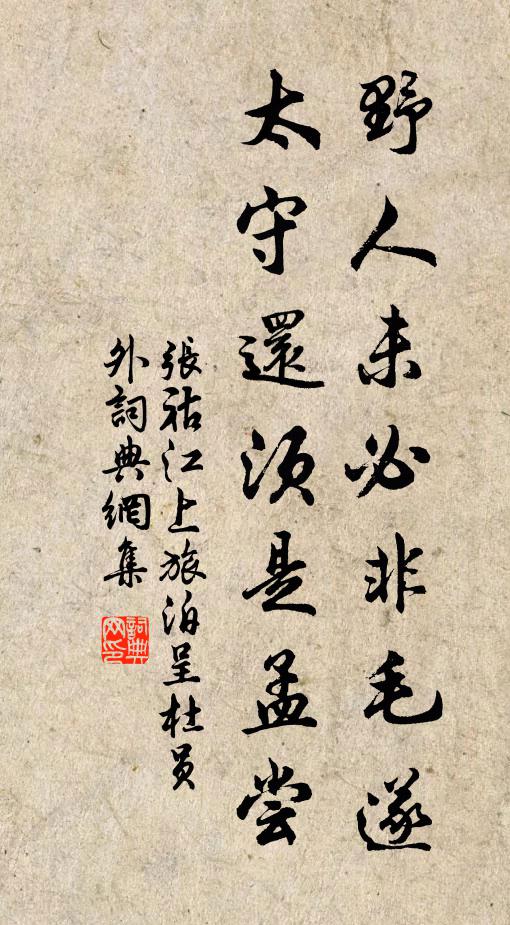 野人未必非毛遂
太守還須是孟嘗
張祜江上旅泊呈杜員
外詞典網集
詞典
网印